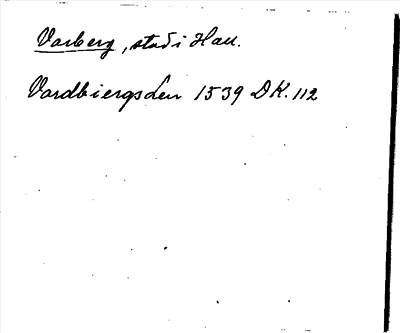 Varberg, stad i Hall.
Vardbiergs Len 1539 DK. 112